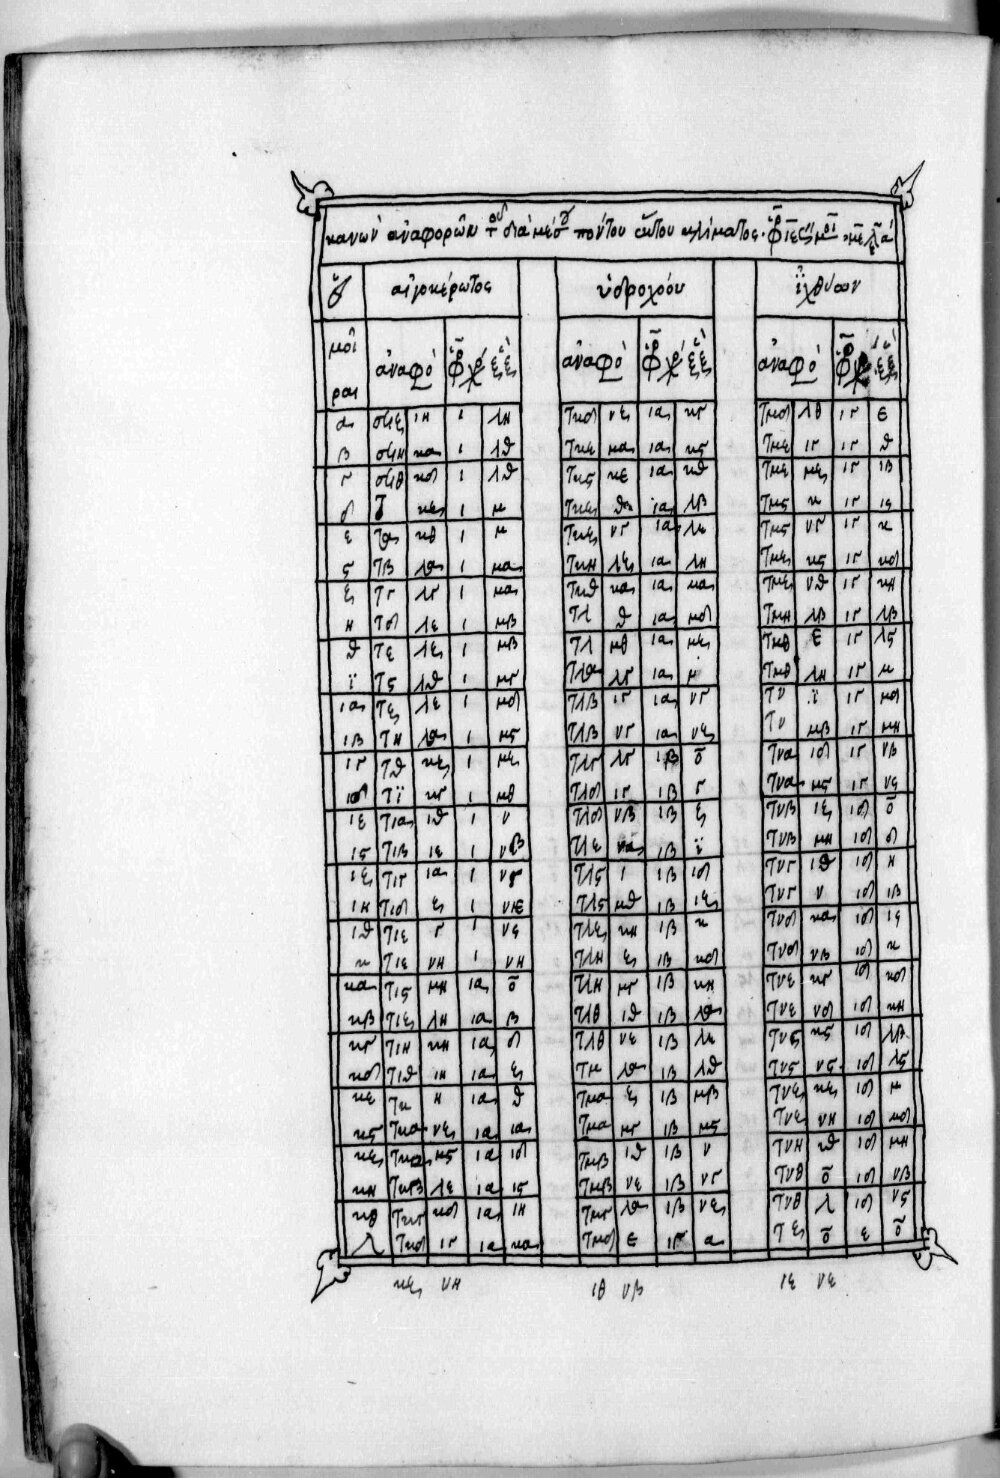 κανὼν ἀναφορῶν τοῦ διὰ μέσου πόντου ἕκτου κλίματος· ιε ϛ μοι με λα
αἰγοκέρωτος ὑδροχόου ἰχθύων
μοῖ ἀναφο χρ ἑξ ἀναφο χρ ἑξ ἀναφο χρ ἑξ
ραι
α σϙζ ιη ι λη τκδ νζ ια κγ τμδ λθ ιγ ε
β σϙη κα ι λθ τκε μα ια κϛ τμε ιγ ιγ θ
γ σϙθ κδ ι λθ τκϛ κε ια κθ τμε μζ ιγ ιβ
δ τ κζ ι μ τκζ θ ια λβ τμϛ κ ιγ ιϛ
ε τα κθ ι μ τκζ νγ ια λε τμϛ νγ ιγ κ
ϛ τβ λα ι μα τκη λζ ια λη τμζ κϛ ιγ κδ
ζ τγ λγ ι μα τκθ κα ια μα τμζ νθ ιγ κη
η τδ λε ι μβ τλ θ ια μδ τμη λβ ιγ λβ
θ τε λζ ι μβ τλ μθ ια μζ τμθ ε ιγ λϛ
ϊ τϛ λθ ι μγ τλα λγ ια τμθ λη ιγ μ
ια τζ λε ι μδ τλβ ιγ ια νγ τν ϊ ιγ μδ
ιβ τη λα ι μϛ τλβ νγ ια νζ τν μβ ιγ μη
ιγ τθ κζ ι μζ τλγ λγ ιβ ō τνα ιδ ιγ νβ
ιδ τϊ κγ ι μθ τλδ ιγ ιβ γ τνα μϛ ιγ νϛ
ιε τια ιθ ι ν τλδ νβ ιβ ζ τνβ ιζ ιδ ō
ιϛ τιβ ιε ι νβ τλε λα ιβ ϊ τνβ μη ιδ δ
ιζ τιγ ια ι νγ τλϛ ι ιβ ιδ τνγ ιθ ιδ η
ιη τιδ ζ ι νε τλϛ μθ ιβ ιζ τνγ ν ιδ ιβ
ιθ τιε γ ι νϛ τλζ κη ιβ κ τνδ κα ιδ ιϛ
κ τιε νη ι νη τλη ζ ιβ κδ τνδ νβ ιδ κ
κα τιϛ μη ια ō τλη μγ ιβ κη τνε κγ ιδ κδ
κβ τιζ λη ια β τλθ ιθ ιβ λα τνε νδ ιδ κη
κγ τιη κη ια δ τλθ νε ιβ λε τνϛ κϛ ιδ λβ
κδ τιθ ιη ια ζ τμ λα ιβ λθ τνϛ νϛ ιδ λϛ
κε τκ η ια θ τμα ζ ιβ μβ τνζ κζ ιδ μ
κϛ τκα νζ ια ια τμα μγ ιβ μϛ τνζ νη ιδ μδ
κζ τκα μϛ ια ιδ τμβ ιθ ιβ ν τνη θ ιδ μη
κη τκβ λε ια ιϛ τμβ νε ιβ νγ τνθ ō ιδ νβ
κθ τκγ κδ ια ιη τμγ λα ιβ νζ τνθ λ ιδ νϛ
λ τκδ ιγ ια κα τμδ ε ιγ α τξ ō ιε ō
κζ νη ιθ νβ ιε νε